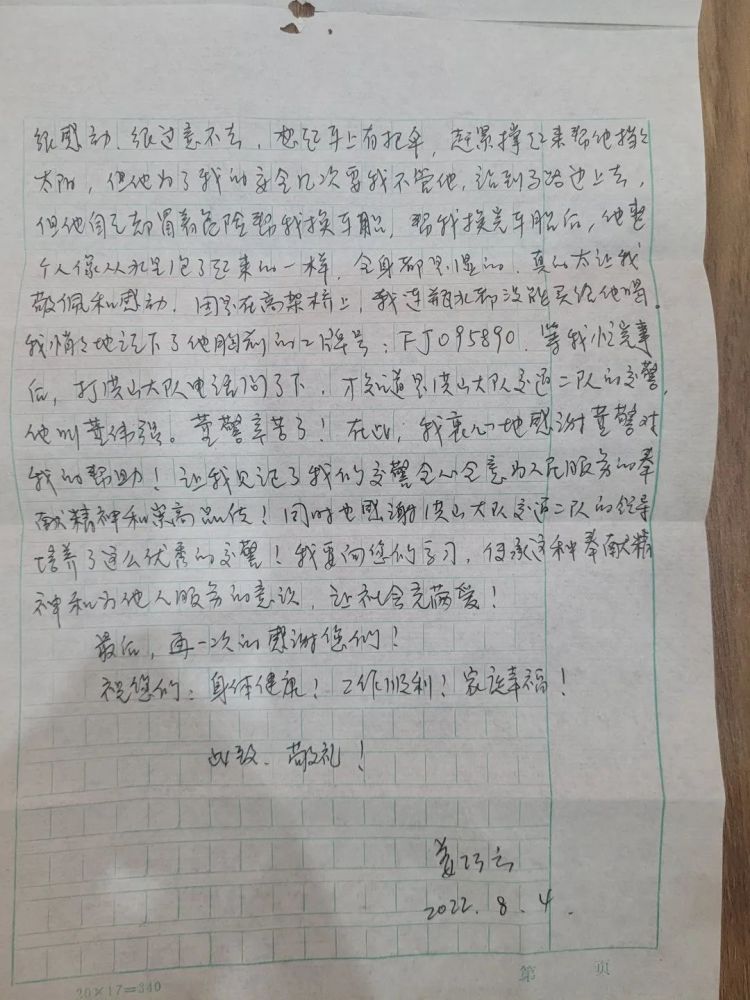 很感动、很过意不去，想起车上有把伞，赶紧撑起来帮他挡挡
太阳，但他为了我的安全几次要我不管他，站到马路边上去，
但他自己却冒着危险帮我换车胎，帮我换完车胎后，他整
个人像从水里泡了起来的一样，全身都是湿的，真的太让我
敬佩和感动，因是在高架桥上，我连瓶水都没能买给他喝。
我悄悄地记下了他胸前的工牌号：FJ095890，等我忙完事
后，打洪山大队电话问了下，才知道是洪山大队交通二队的交警，
他叫董伟强。董警辛苦了！在此，我衷心地感谢董警对
我的帮助！让我见记了我们交警全心全意为人民服务的奉
献精神和崇高品质！同时也感谢洪山大队交通二队的领导
培养了这么优秀的交警！我要向您们学习，传承这种奉献精
神和为他人服务的意识，让社会充满爱！
最后，再一次的感谢您们！
祝您们：身体健康！工作顺利！家庭幸福！
此致、敬礼！
2022.8.4.
20×17=340
第 页